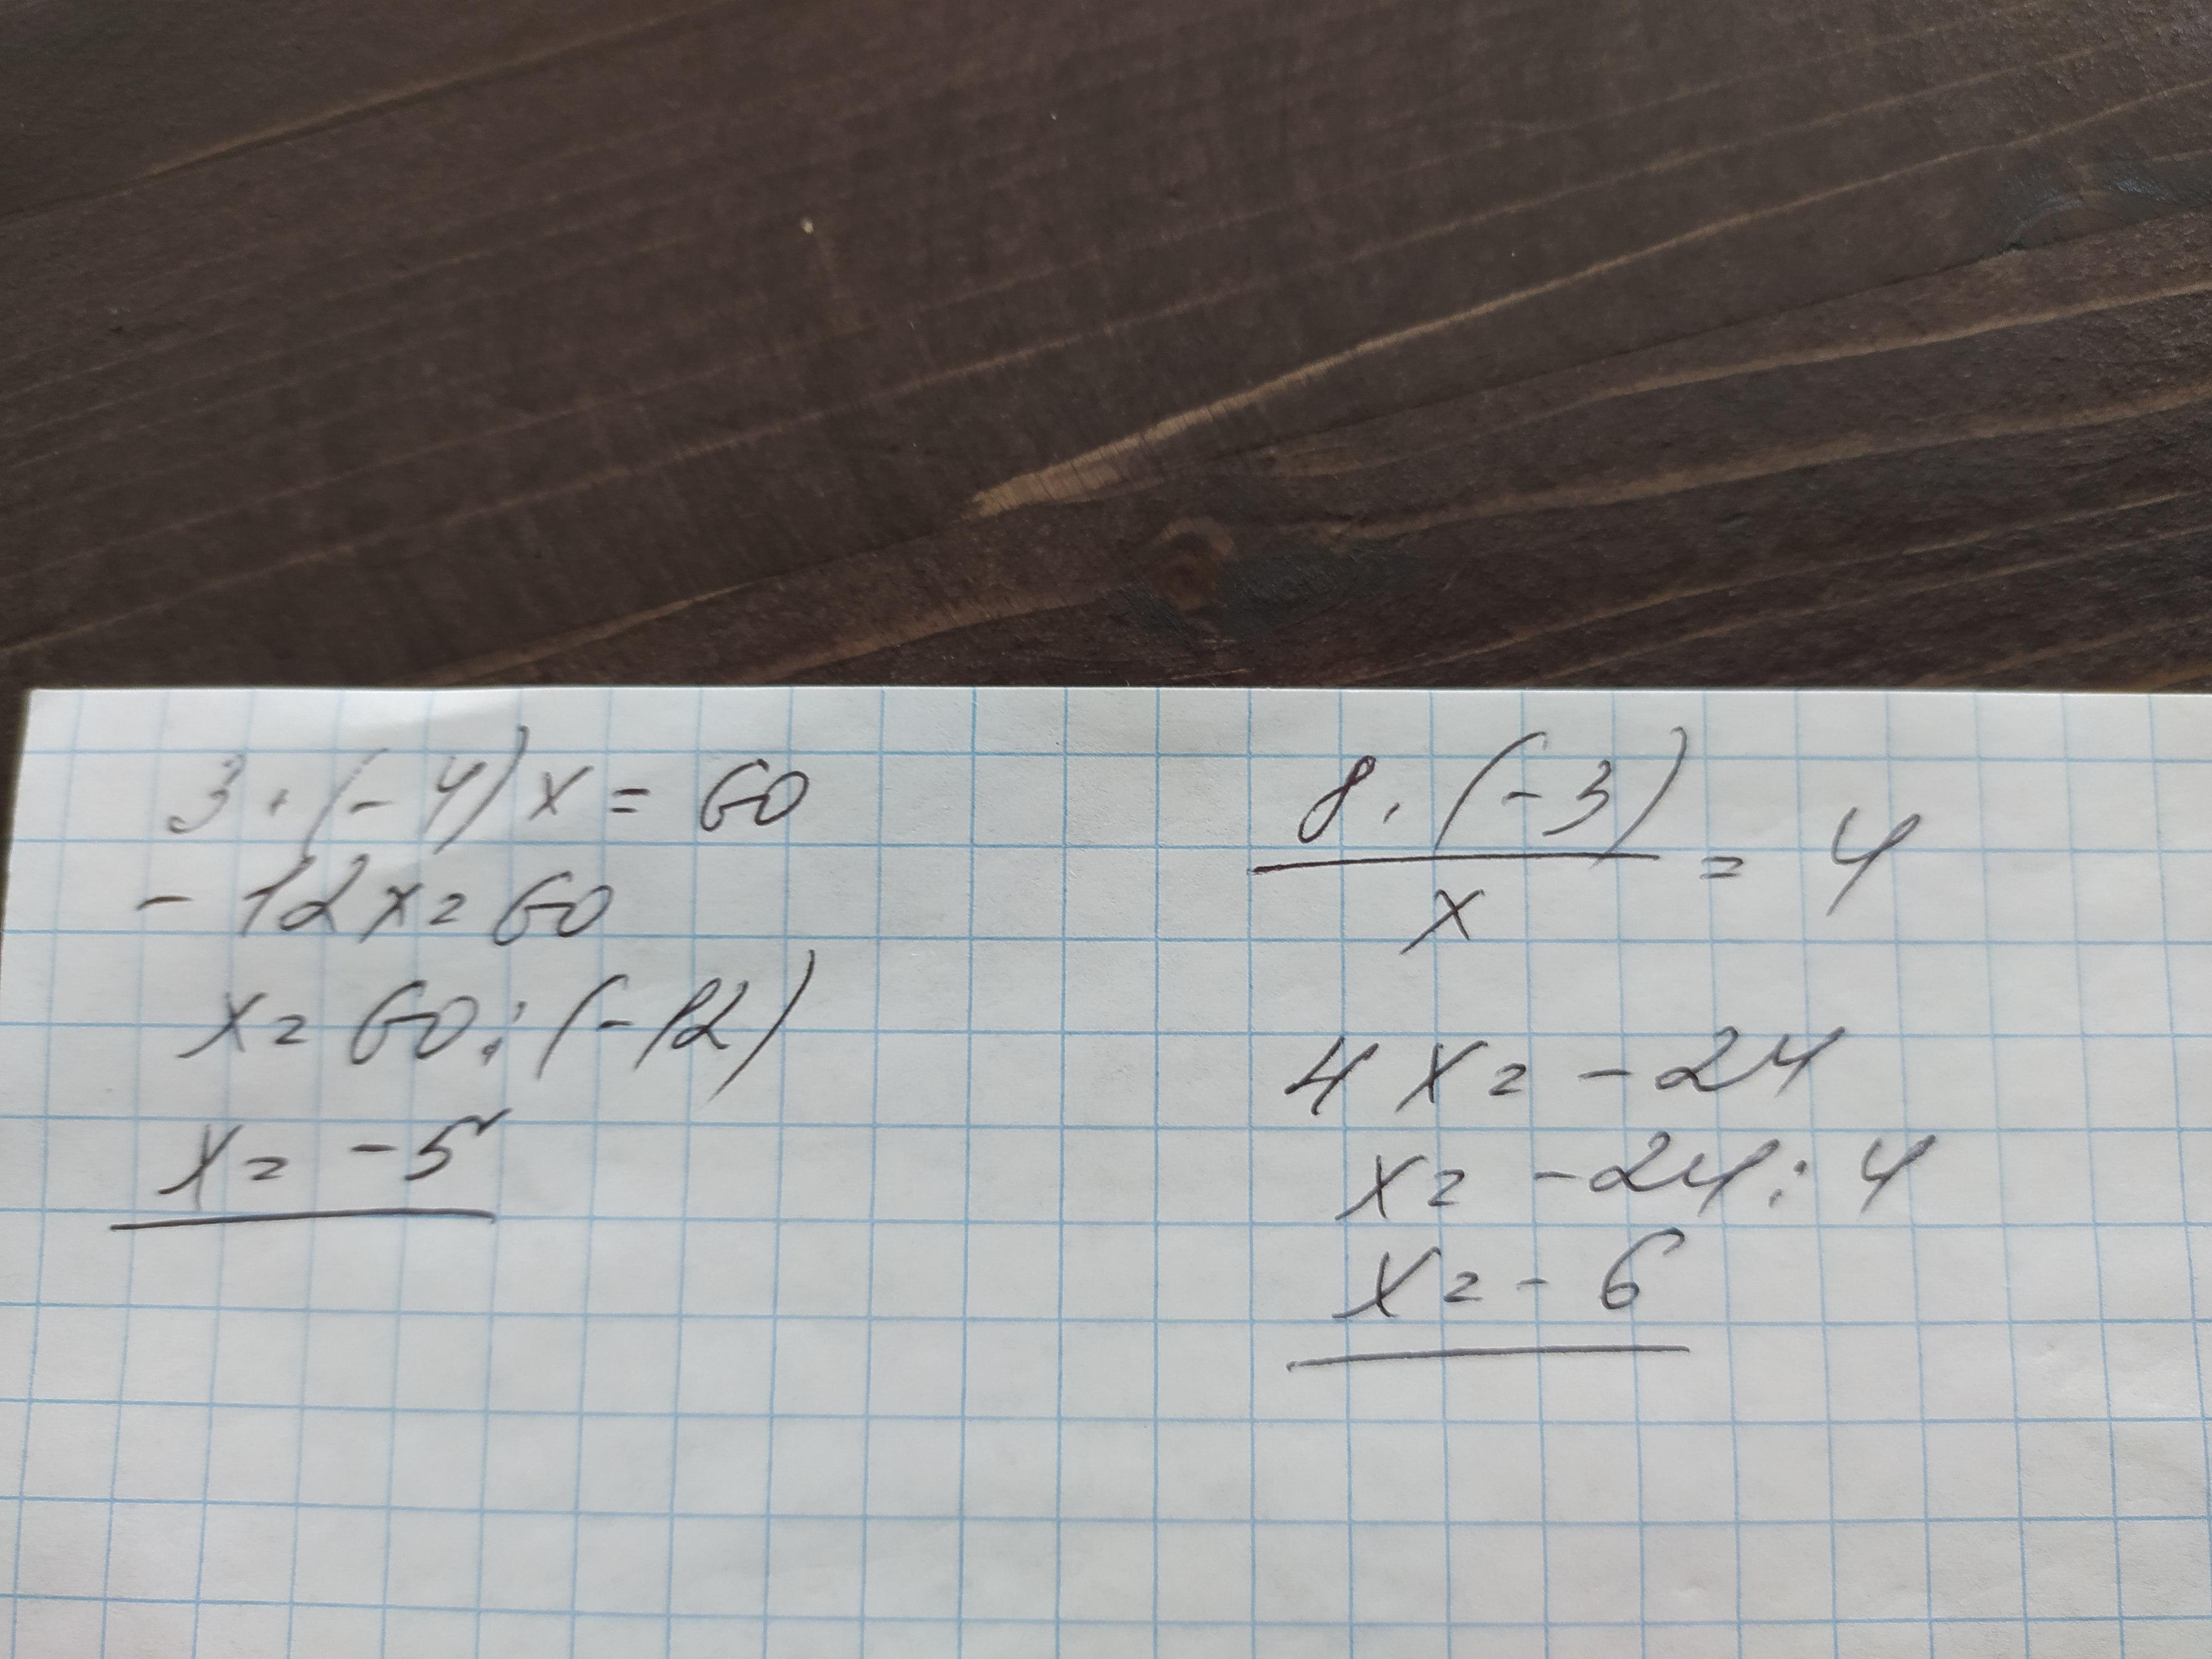 3 · (-4) x = 60
- 12x = 60
x = 60 : (-12)
x = -5
8 · (-3)
x
= 4
4x = -24
x = -24 : 4
x = -6